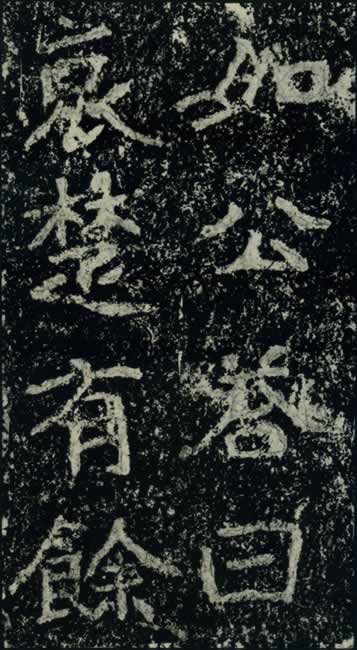 如公曰
哀楚有餘